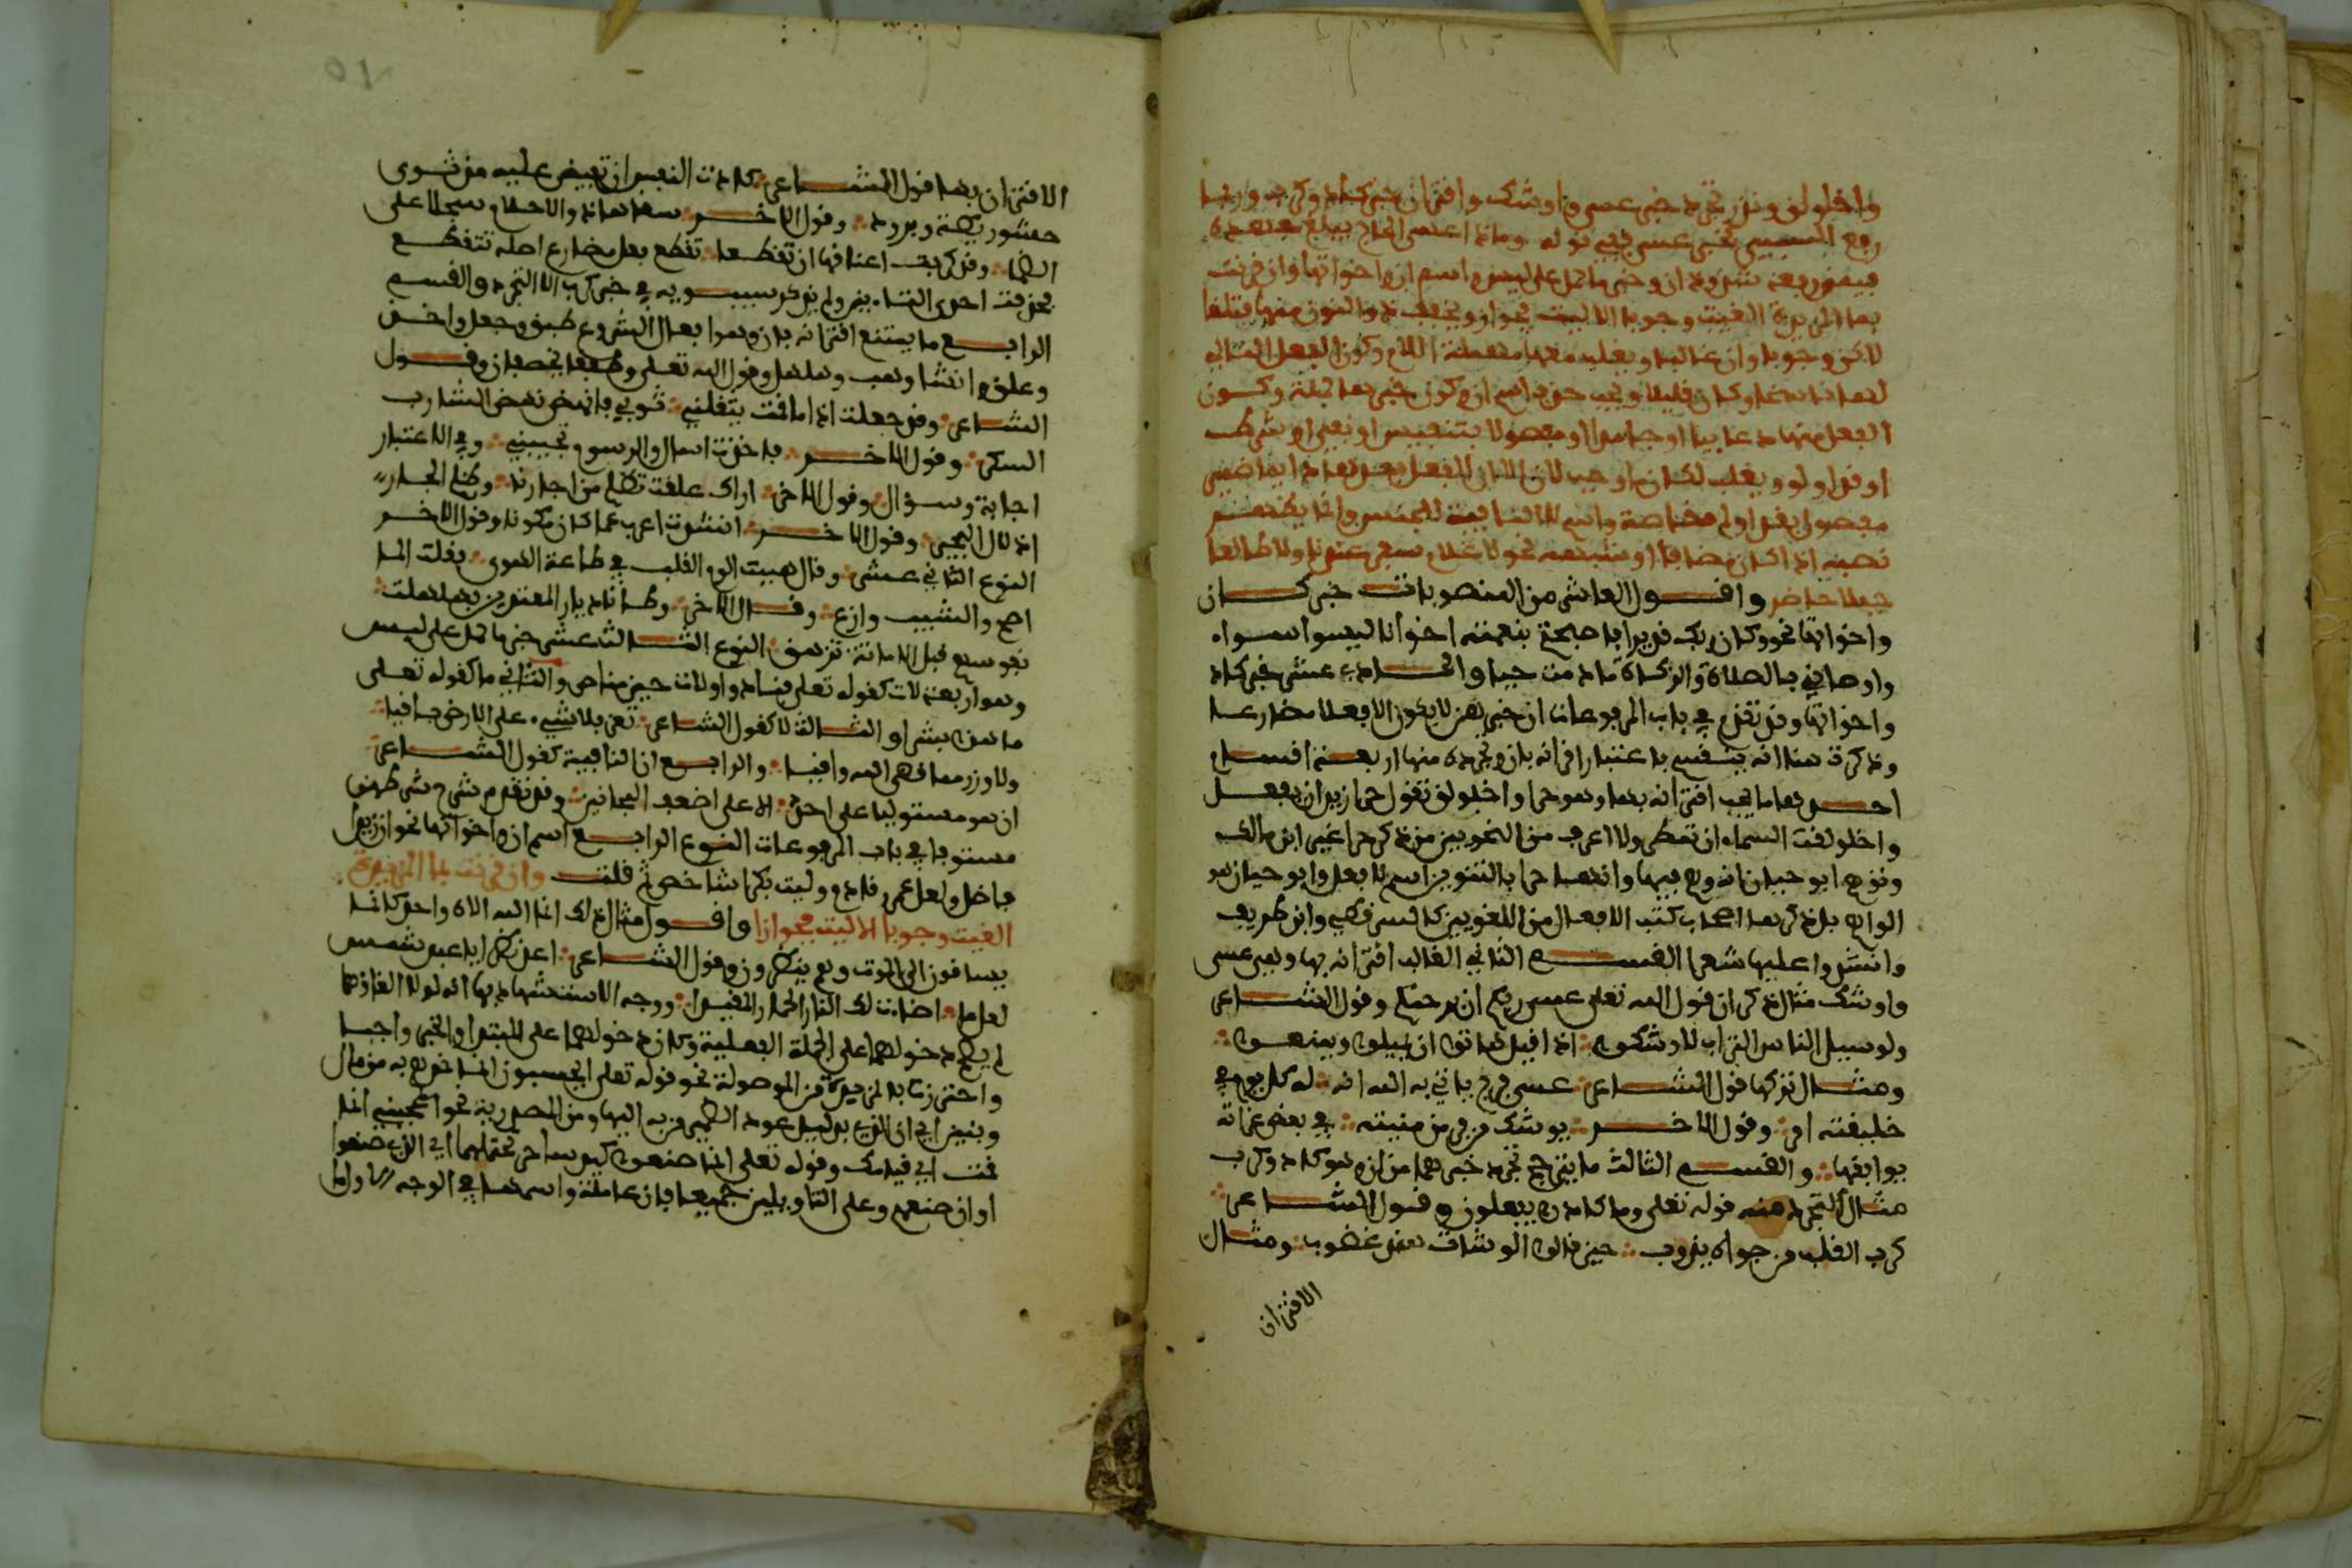 واخلولق وندر تجرد خبر عسى واوشك واقتران خبر كاد وكرب وربما
رفع السببي بخبر عسى ففي قوله وماذا عسى الحجاج يبلغ جهده
فيمن رفعه شذوذان وخبر ما حمل على ليس واسم ان واخواتها وان قرنت
بما المزيدة الغيت وجوبا الا ليت فجوازا ويخفف ذو النون منها فتلغا
لاكن وجوبا وان غالبا ويغلب معها مهملة اللام وكون الفعل التالي
لها ناسخا وكان قليلا ويجب حذف اسم ان وكون خبرها جملة وكون
الفعل منها دعاييا او جامدا او مفصولا بتنفيس او نفي او شرط
او قد او لو ويغلب لكان ما وجب لان الا ان الفعل بعدها دايما خبري
مفصول بقد او لم خاصة واسم لا النافية للجنس وانما يظهر
نصبه اذا كان مضافا او شبهه نحو لا غلام سفر عندنا ولا طالعا
جبلا حاضر واقول العاشر من المنصوبات خبر كان
واخواتها نحو وكان ربك قديرا فاصبحتم بنعمته اخوانا ليسوا سواء
واوصاني بالصلاة والزكاة ما دمت حيا والحادي عشر خبر كاد
واخواتها وقد تقدم في باب المرفوعات ان خبرهن لا يكون الا فعلا مضارعا
وذكرت هنا انه ينقسم باعتبار اقترانه بان وتجرده منها اربعة اقسام
احدها ما يجب اقترانه بها وهو حرا واخلولق تقول حرا زيد ان يفعل
واخلولقت السماء ان تمطر ولا اعرف من النحويين من ذكر حرا غير ابن مالك
وتوهم ابو حيان انه وهم فيها وانما هي حرا بالتنوين اسم لا فعل وابو حيان هو
الواهم بل ذكرها اصحاب كتب الافعال من اللغويين كالسرقسطي وابن طريف
وانشدوا عليها شعرا القسم الثاني الغالب اقترانه بها وهي عسى
واوشك مثال ذكر ان قول الله تعلى عسى ربكم ان يرحمكم وقول الشاعر
ولو سيل الناس التراب لاوشكوا اذا قيل هاتوا ان يملوا ويمنعوا
ومثال تركها قول الشاعر عسى فرج ياتي به الله انه له كل يوم في
خليقته امر وقول الاخر يوشك من فر من منيته في بعض غراته
يوافقها والقسم الثالث ما يترجح تجرد خبرهما من ان وهو كاد وكرب
مثال التجرد منه قوله تعلى وما كادوا يفعلون وقول الشاعر
كرب القلب من جواه يذوب حين قال الوشاة هند غضوب ومثال
الاقتران
الاقتران بها قول الشاعر كادت النفس ان تفيض عليه مذ ثوى
حشو ريطة وبرود وقول الاخر سقاها ذوو الاحلام سجلا على
الظما وقد كربت اعناقها ان تقطعا تقطع فعل مضارع اصله تتقطع
فحذفت احدى التاءين ولم يذكر سيبويه في خبر كرب الا التجرد والقسم
الرابع ما يمتنع اقترانه بان وهو افعال الشروع طفق وجعل واخذ
وعلق وانشا وهب وهلهل وقول الله تعلى وطفقا يخصفان وقول
الشاعر وقد جعلت اذا ما قمت يثقلني ثوبي فانهض نهض الشارب
السكر وقول الاخر فاخذت اسال والرسوم تجيبني وفي الاعتبار
اجابة وسؤال وقول الاخر اراك علقت تظلم من اجرنا وظلم الجار
اذلال المجير وقول الاخر انشات اعرب عما كان مكنونا وقول الاخر
النوع الثاني عشر وقال هببت الوم القلب في طاعة الهوى فقلت الما
اصح والشيب وازع وقال الاخر وطئنا ديار المعتدين فهلهلت
نفوسهم قبل الاماتة تزهق النوع الثالث عشر خبر ما حمل على ليس
وهو اربعة لات كقوله تعلى فنادوا ولات حين مناص والثاني ما كقوله تعلى
ما هذا بشرا والثالث لا كقول الشاعر تعز فلا شيء على الارض باقيا
ولا وزر مما قضى الله واقيا والرابع ان النافية كقول الشاعر
ان هو مستوليا على احد الا على اضعف المجانين وقد تقدم شرح شرطهن
مستوفا في باب المرفوعات النوع الرابع اسم ان واخواتها نحو ان زيدا
فاضل ولعل عمرا قادم وليت بكرا شاخص ثم قلت وان قرنت بما المزيدة
الغيت وجوبا الا ليت فجوازا واقول مثال ذلك انما الله الاه واحد كانما
يساقون الى الموت وهم ينظرون وقول الشاعر اعد نظرا يا عبد شمس
لعلما اضاءت لك النار الحمار المقيدا ووجه الاستشهاد بهما انه لولا الغاؤهما
لم يصح دخولهما على الجملة الفعلية وكان دخولهما على المبتدا والخبر واجبا
واحترزت بالمزيدة من الموصولة نحو قوله تعلى ايحسبون انما نمدهم به من مال
وبنين اي ان الذي بدليل عود الضمير من به اليها ومن المصدرية نحو اعجبني انما
قمت اي قيامك وقوله تعلى انما صنعوا كيد ساحر يحتملهما اي ان الذي صنعوا
او ان صنعهم وعلى التاويلين جميعا فان عاملة واسمها في الوجه الاول